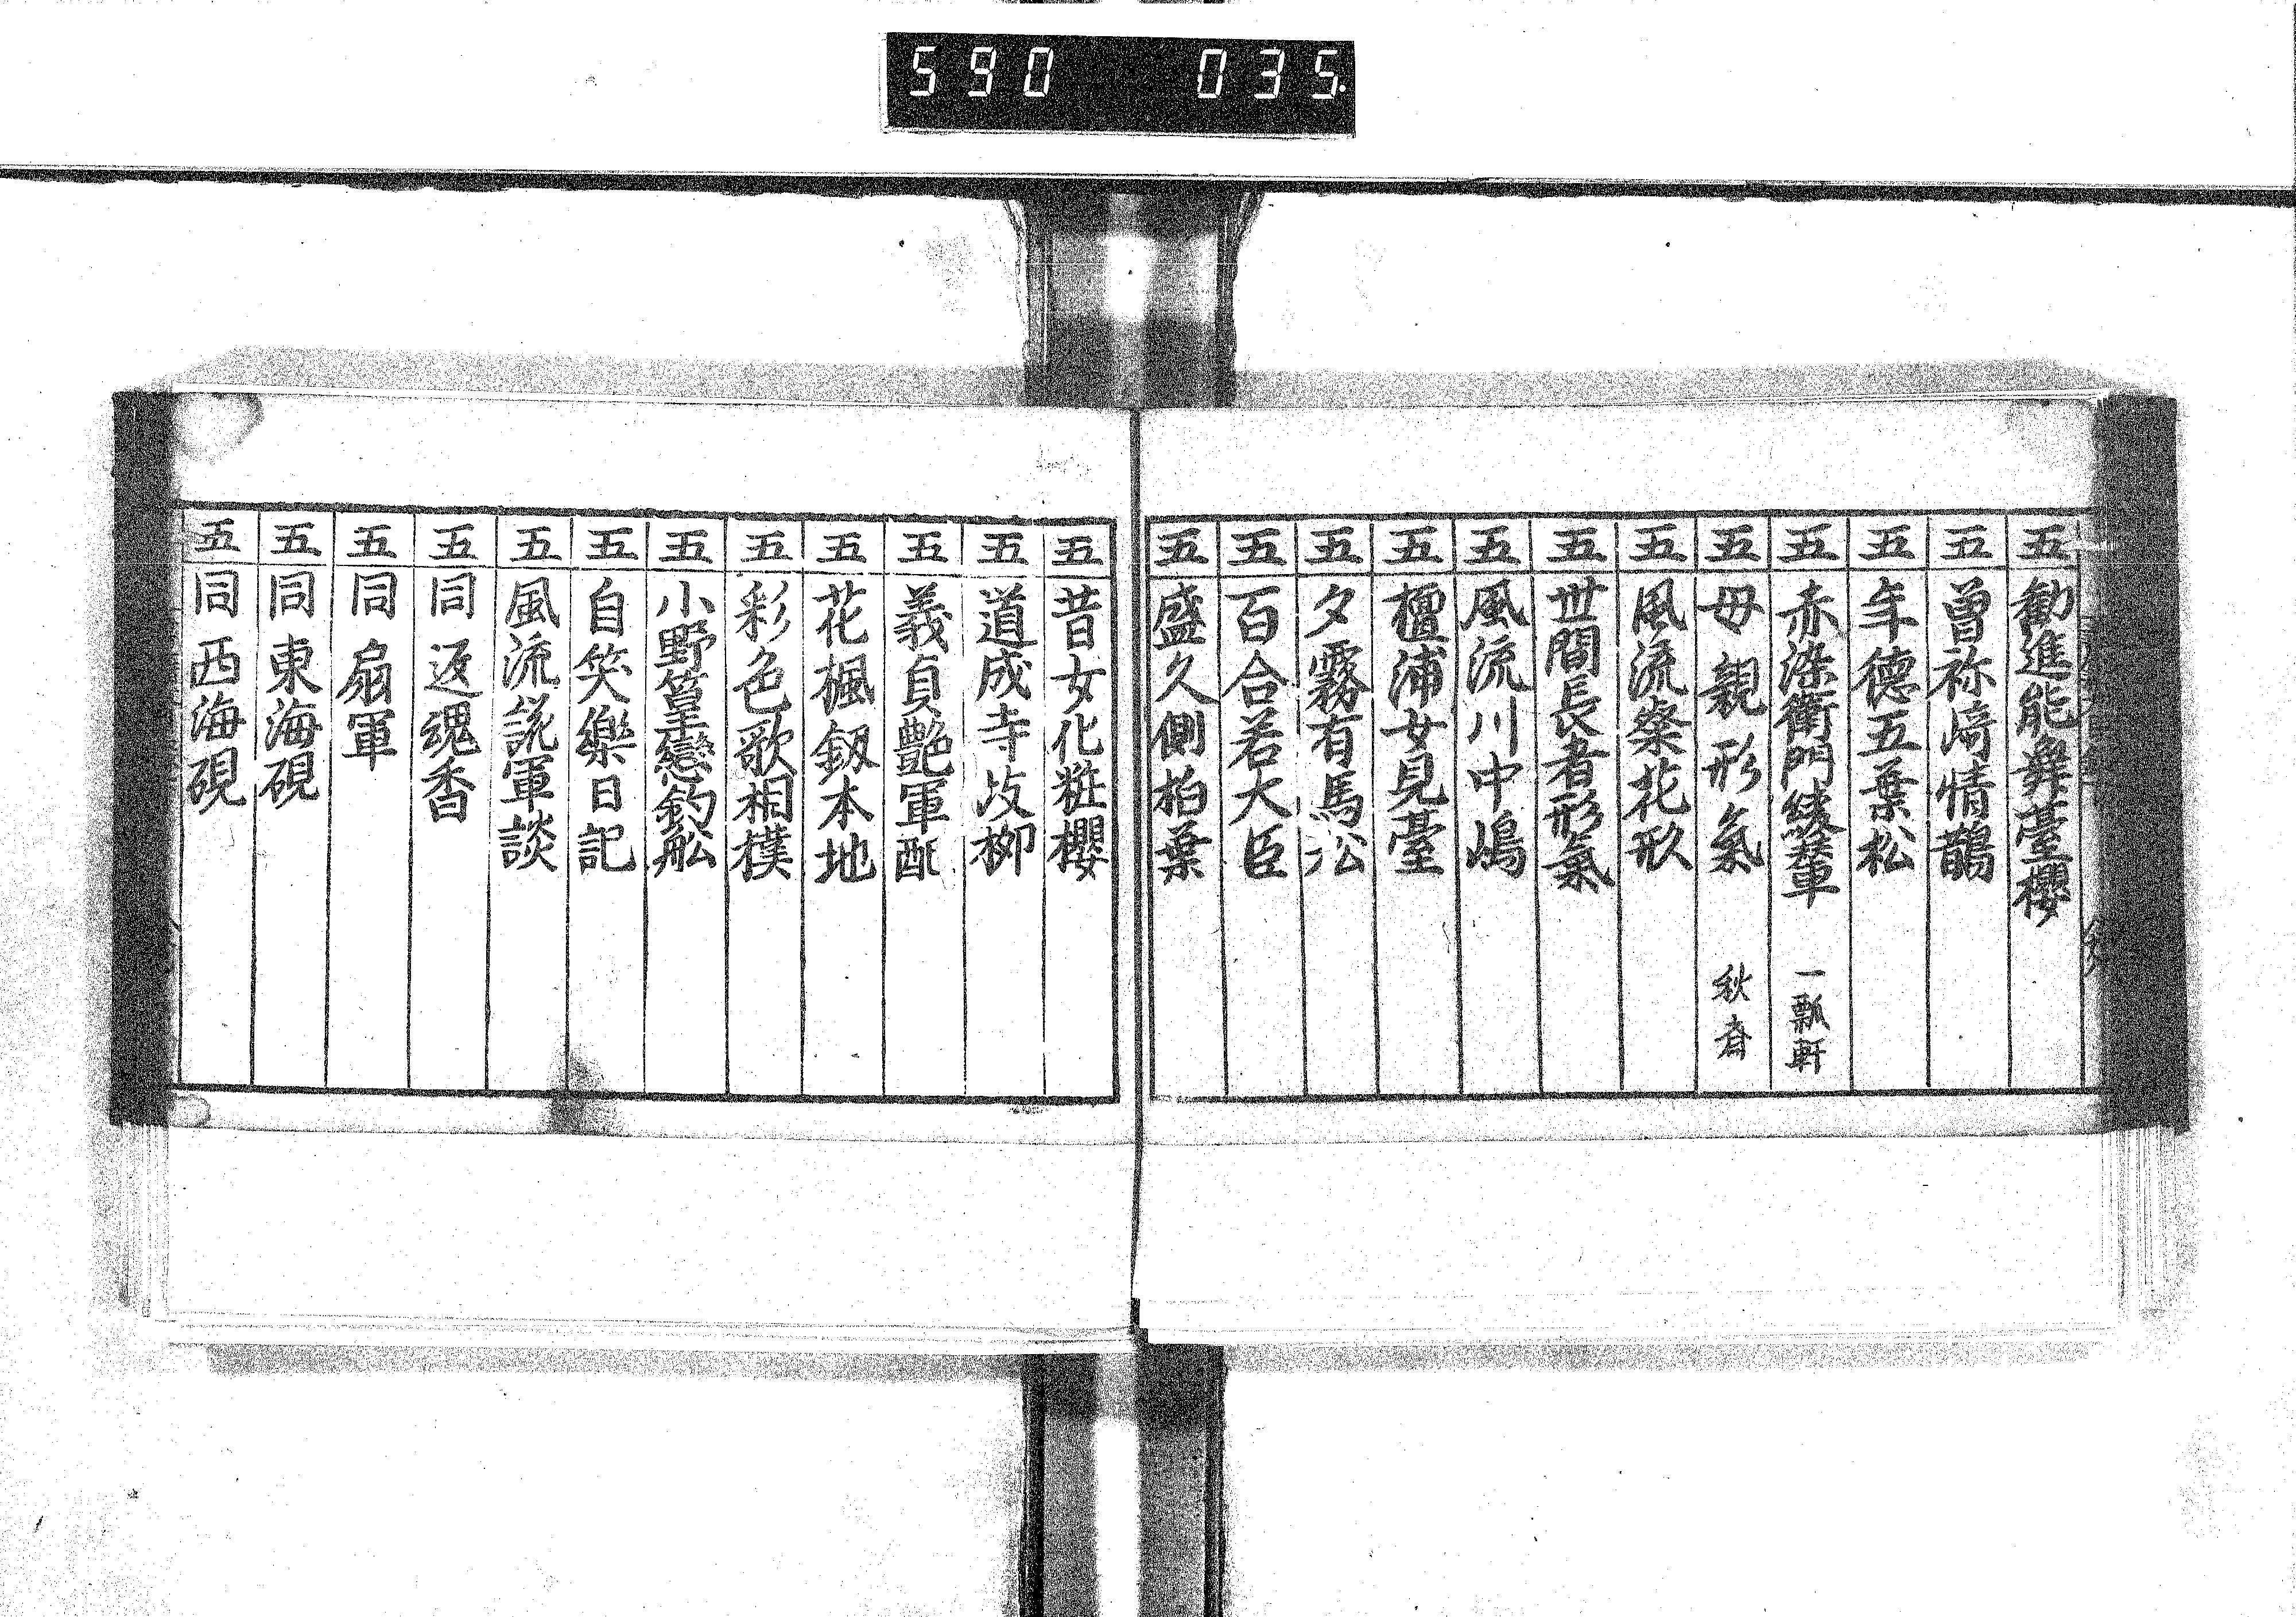 590 035.
五 勧進能舞臺櫻
五 曽祢﨑情鵲
五 年德五葉松
五 赤染衛門綾輦 一瓢軒
五 母親形氣 秋斎
五 風流䊹花形
五 世間長者形氣
五 風流川中嶋
五 檀浦女見臺
五 夕霧有馬松
五 百合若大臣
五 盛久側柏葉
五 昔女化粧櫻
五 道成寺岐柳
五 義貞艶軍配
五 花楓釼本地
五 彩色歌相撲
五 小野篁戀釣舩
五 自笑樂日記
五 風流誂軍談
五 同 返魂香
五 同 扇軍
五 同 東海硯
五 同 西海硯